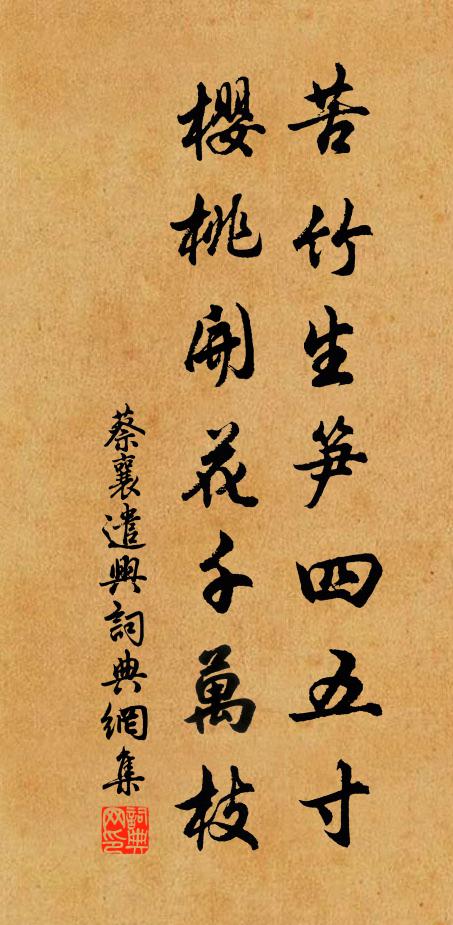 苦竹生笋四五寸
櫻桃開花千萬枝
蔡襄遣興詞典網集
詞典网印